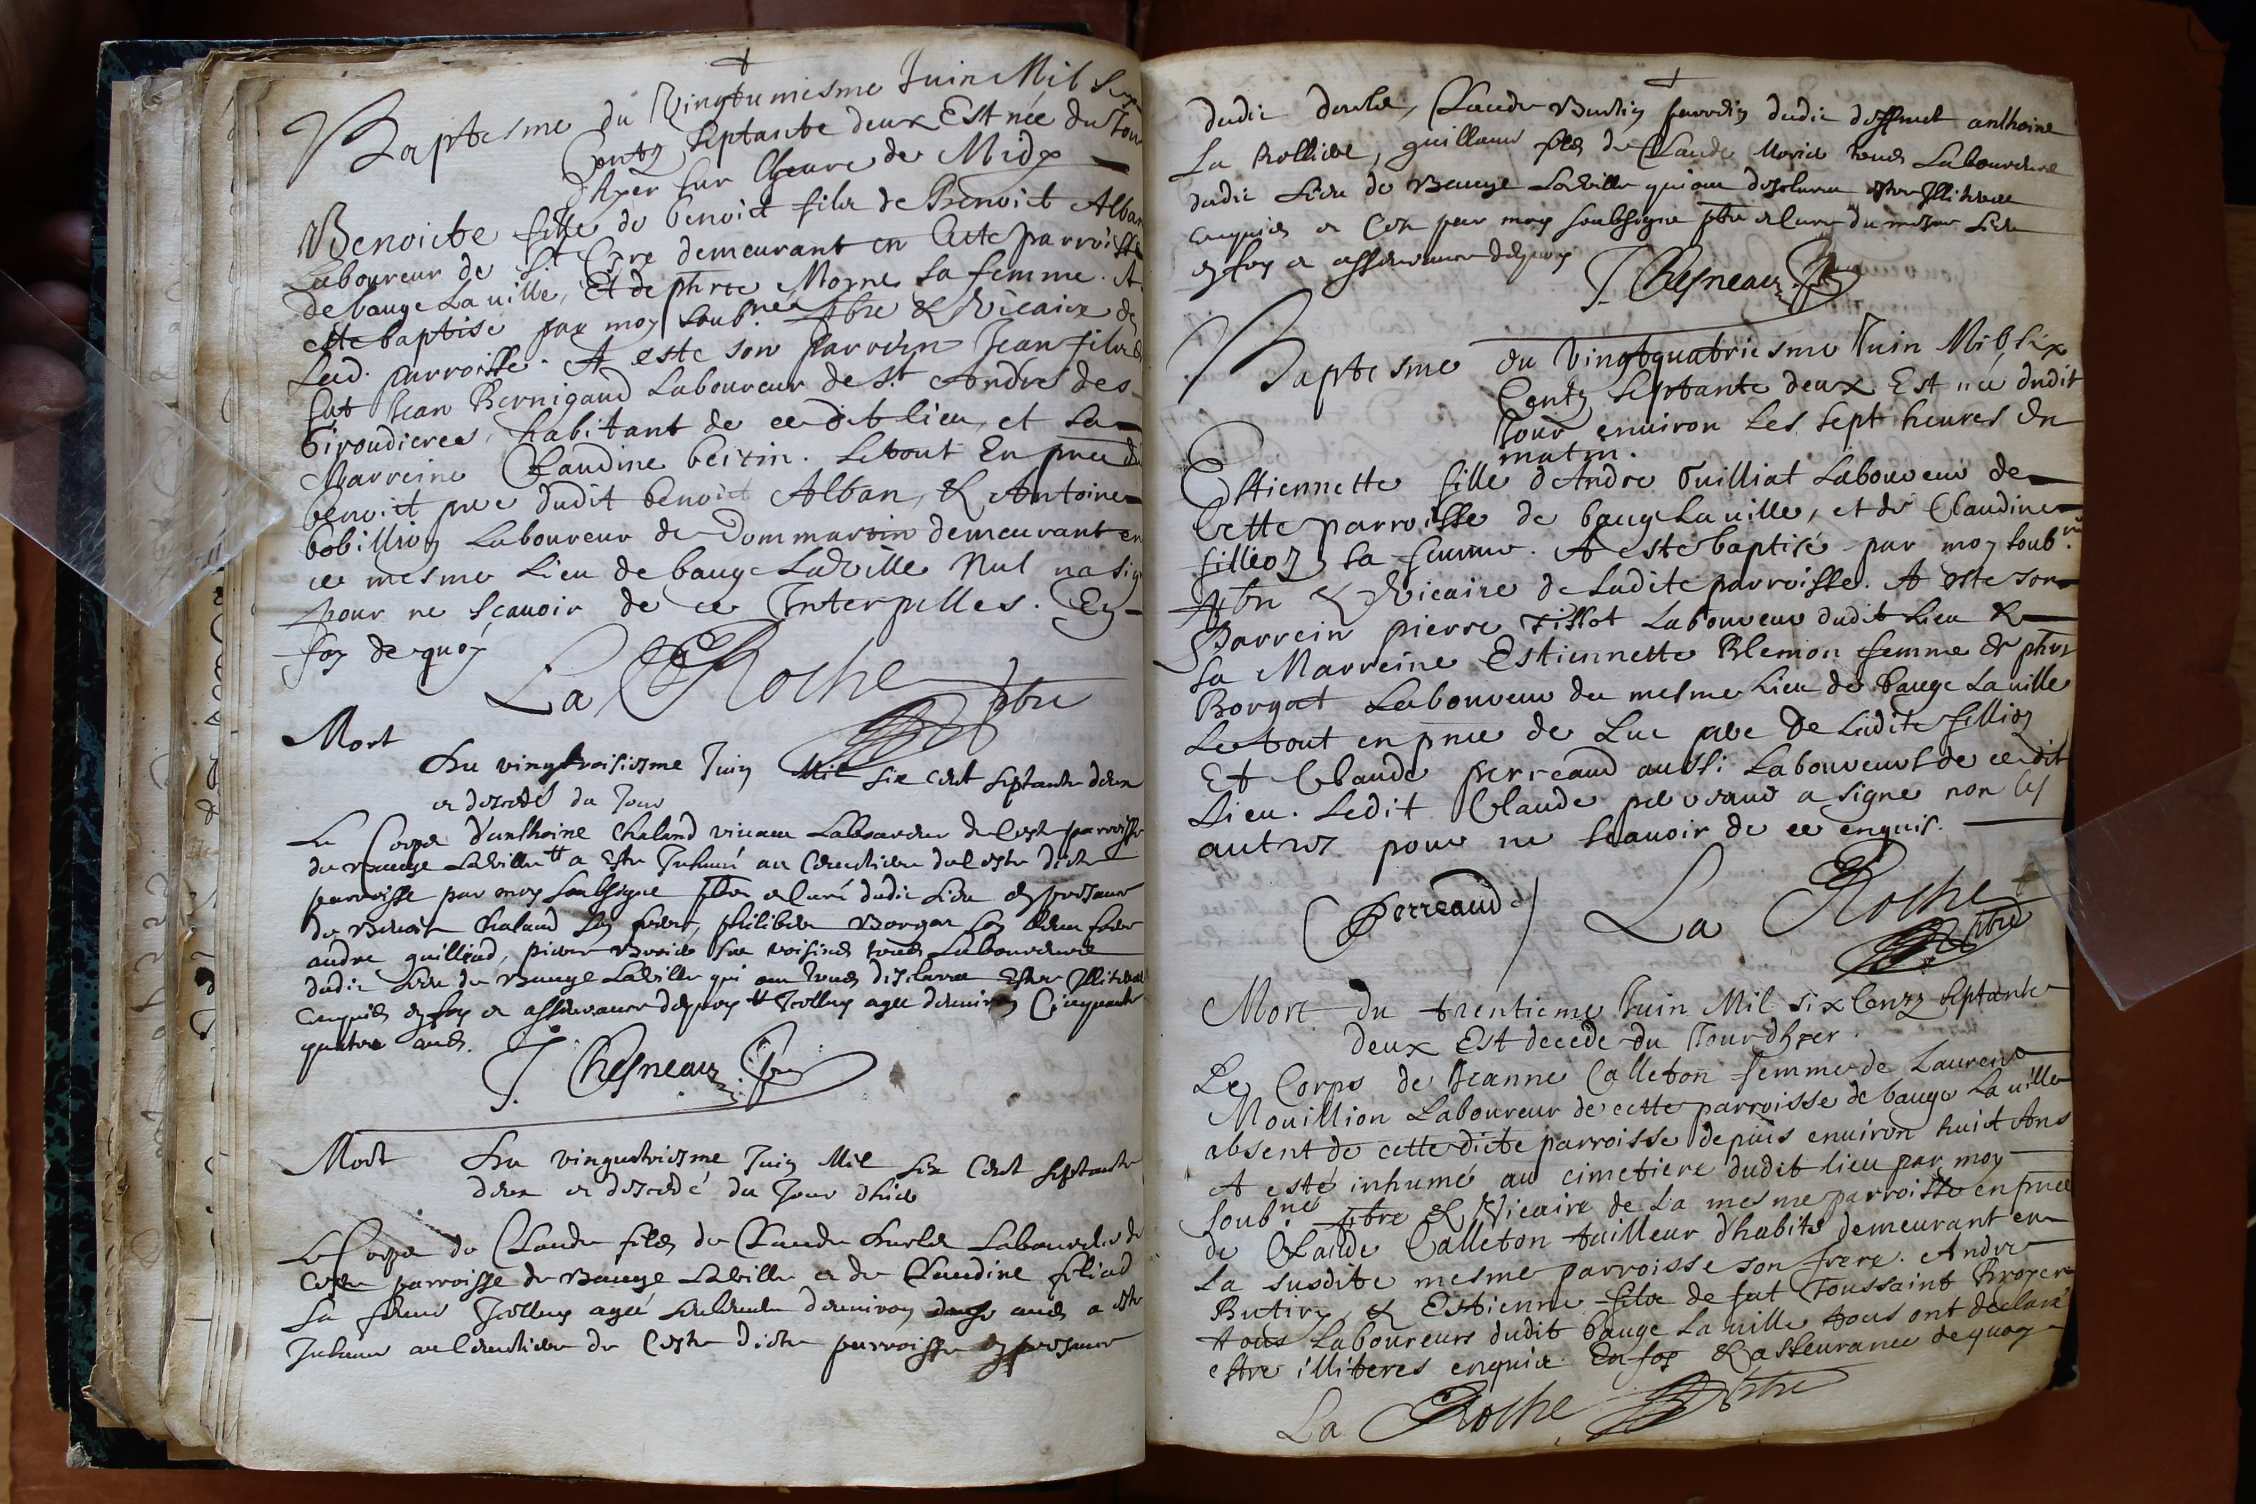 Baptesme du Vingtunиesme Juin Mil Six
Centz Septante deux Est née du Jour
d'hyer sur lheure de Midy
Benoicte fille de benoict filz de Benoict Alban
Laboureur de St Cyre demeurant en Cette parroisse
de bauge La uille, Et de phrte Morne sa femme. A
este baptise par moy soubné pbre & Vicaire de
Lad. parroisse. A este son parrein Jean filz de
fut Jean Bernigaud Laboureur de St Andre des
biroudieres, habitant de ce dit lieu, et sa
Marreine Claudine bertin. Le tout En pnce du
benoict pere dudit benoict Alban, & Antoine
bobillion Laboureur de Dommartin demeurant en
ce mesme Lieu de bauge La Ville Nul na sig
pour ne scauoir de ce Interpelles. En
foy de quoy
La Roche pbre
Mort
Du vingtroisiesme Juin Mil six cent septante deux
et decedé du Jour
Le Corps d'anthoine Chaland viuant Laboureur de Ceste parroisse
de Bauge La ville # a este Inhumé au Cimetiere de ceste dicte
parroisse par moy soubsigne pbre et curé dudic Lieu en presence
de Benoit Chaland son frere, philibert Borgat son beau frere
andre guilliad, pierre Boride ses voisins tous Laboureurs
dudic Lieu de Bauge La ville qui ont tous desclarez Estre Illiteres
enquis en foy et asseurance dequoy # Icelluy agee denuiron Cinquante
quatre ans.
J. Chesneau pbre
Mort Du vingtquatriesme Juin Mil six cent septante
deux et decedé du Jour d'hier
Le Corps de Claude filz de Claude Laboureur de
Ceste parroisse de Bauge La ville et de Claudine filiod
sa femme Icelluy agee seulement denuiron ans a este
Inhumé au Cimetiere de Ceste dicte parroisse en presence
dudic Claude Burtin parrein dudic deffunct anthoine
La Rolliere, guillaume filz de Claude Morid tous Laboureurs
dudic Lieu de Bauge La ville qui ont desclarez estre Illiteres
enquis et Ce par moy soubsigne pbre et Cure du mesme Lieu
en foy et asseurance dequoy
J. Chesneau pbre
Baptesme du Vingtquatriesme Juin Mil six
Centz Septante deux Est née dudit
Jour enuiron les sept heures du
matin.
Estiennette fille d'Andre Guilliat Laboureur de
Cette parroisse de bauge La uille, et de Claudine
fillion sa femme. A este baptisé par moy soubné
pbre & Vicaire de Ladite parroisse. A este son
Parrein pierre Tissot Laboureur dudit Lieu &
sa Marreine Estiennette Blemon femme de phrt
Borgat Laboureur du mesme Lieu de bauge La uille
Le tout en pnce de Luc pere de Ladite fillion
Et Claude perreaud aussi Laboureurs de ce dit
Lieu. Ledit Claude perreaud a signe non les
autres pour ne scauoir de ce enquis.
Perreaud
La Roche pbre
Mort du trentieme Juin Mil six Centz septante
deux Est decede du Jour dhyer.
Le Corps de Jeanne Calleton femme de Laurens
Mouillion Laboureur de cette parroisse de bauge La uille
absent de cette dicte parroisse depuis enuiron huict Ans
A esté inhumé au cimetiere dudit lieu par moy
soubné pbre & Vicaire de La mesme parroisse en pnce
de Claude Calleton tailleur d'habits demeurant en
La susdite mesme parroisse son frere. Andre
Butin & Estienne filz de fut Toussaint Broyer
tous Laboureurs dudit bauge La uille tous ont declaré
estre illiteres enquis. En foy & asseurance de quoy
La Roche pbre